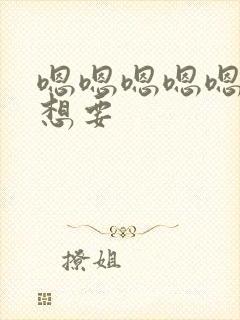 嗯嗯嗯嗯嗯
想要
撩姐